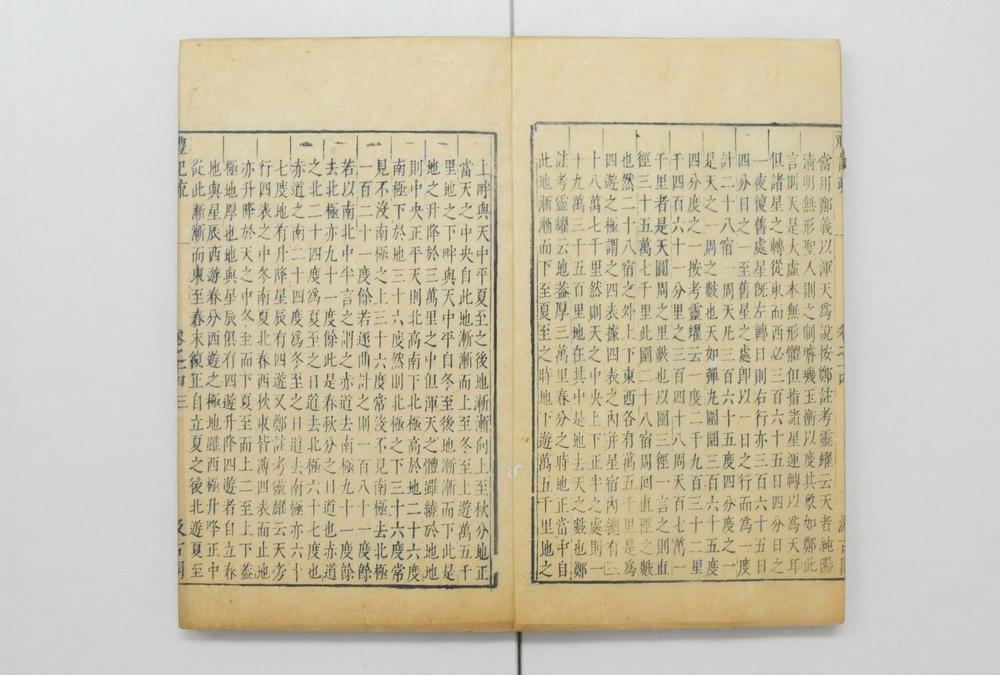 當用鄭義以渾天爲說按鄭註考靈耀云天者純陽
清明無形聖人則之制璿璣玉衡以度其象如鄭此
言則天是大虛本無形體但指諸星運轉以爲天耳
但諸星之轉從東而西必三百六十五日四分日之
一夜復舊處星旣左轉日則右行亦三百六十五日
四分日之一至舊星之處卽以一日之行而爲一度
計二十八宿一周天凡三百六十五度四分度之一
是天之一周之數也天如彈丸圍圜三百六十五度
四分度之一按考靈耀云一度二千九百三十二里
千四百六十一分里之三百四十八周天百七萬一
千里者是天圓周之里數也以圍三徑一言之則直
徑三十五萬七千里此二十八宿周回直徑之數
也然二十八宿之外上下東西各有萬五千里是爲
四遊之極謂之四表據四表之內并星宿內總有三
十八萬七千里然則天之中央上下正半之處則一
十九萬三千五百里地在其中是地去天之數也鄭
註考靈耀云地蓋厚三萬里春分之時地正當中自
此地漸漸而下至夏至之時地下遊萬五千里地之
上畔與天中平夏至之後地漸漸向上至秋分地正
當天之中央自此地漸漸而上至冬至上遊萬五千
里地之下畔與天中平自冬至後地漸漸而下此是
地之升降於三萬里之中但渾天之體雖繞於地地
則中央正平天則北高南下北極高於地三十六度
南極下於地三十六度然則北極之下三十六度常
見不沒南極之上三十六度常沒不見南極去北極
一百二十一度餘若逐曲計之則一百八十一度餘
若以南北中半言之謂之赤道去南極九十一度餘
去北極亦九十一度餘此是春秋分之日道也赤道
之北二十四度爲夏至之日道去北極六十七度也
赤道之南二十四度爲冬至之日道去南極亦六十
七度地有升降星辰有四遊又鄭註考靈耀云天旁
行四表之中冬南夏北春西秋東皆薄四表而止地
亦升降於天之中冬至而下夏至而上二至上下蓋
極地厚也地與星辰俱有四遊升降四遊者自立春
地與星辰西遊春分西遊之極地雖西極升降正中
從此漸漸而東至春末復正自立夏之後北遊夏至
禮記疏
卷之十四
三
汲古閣